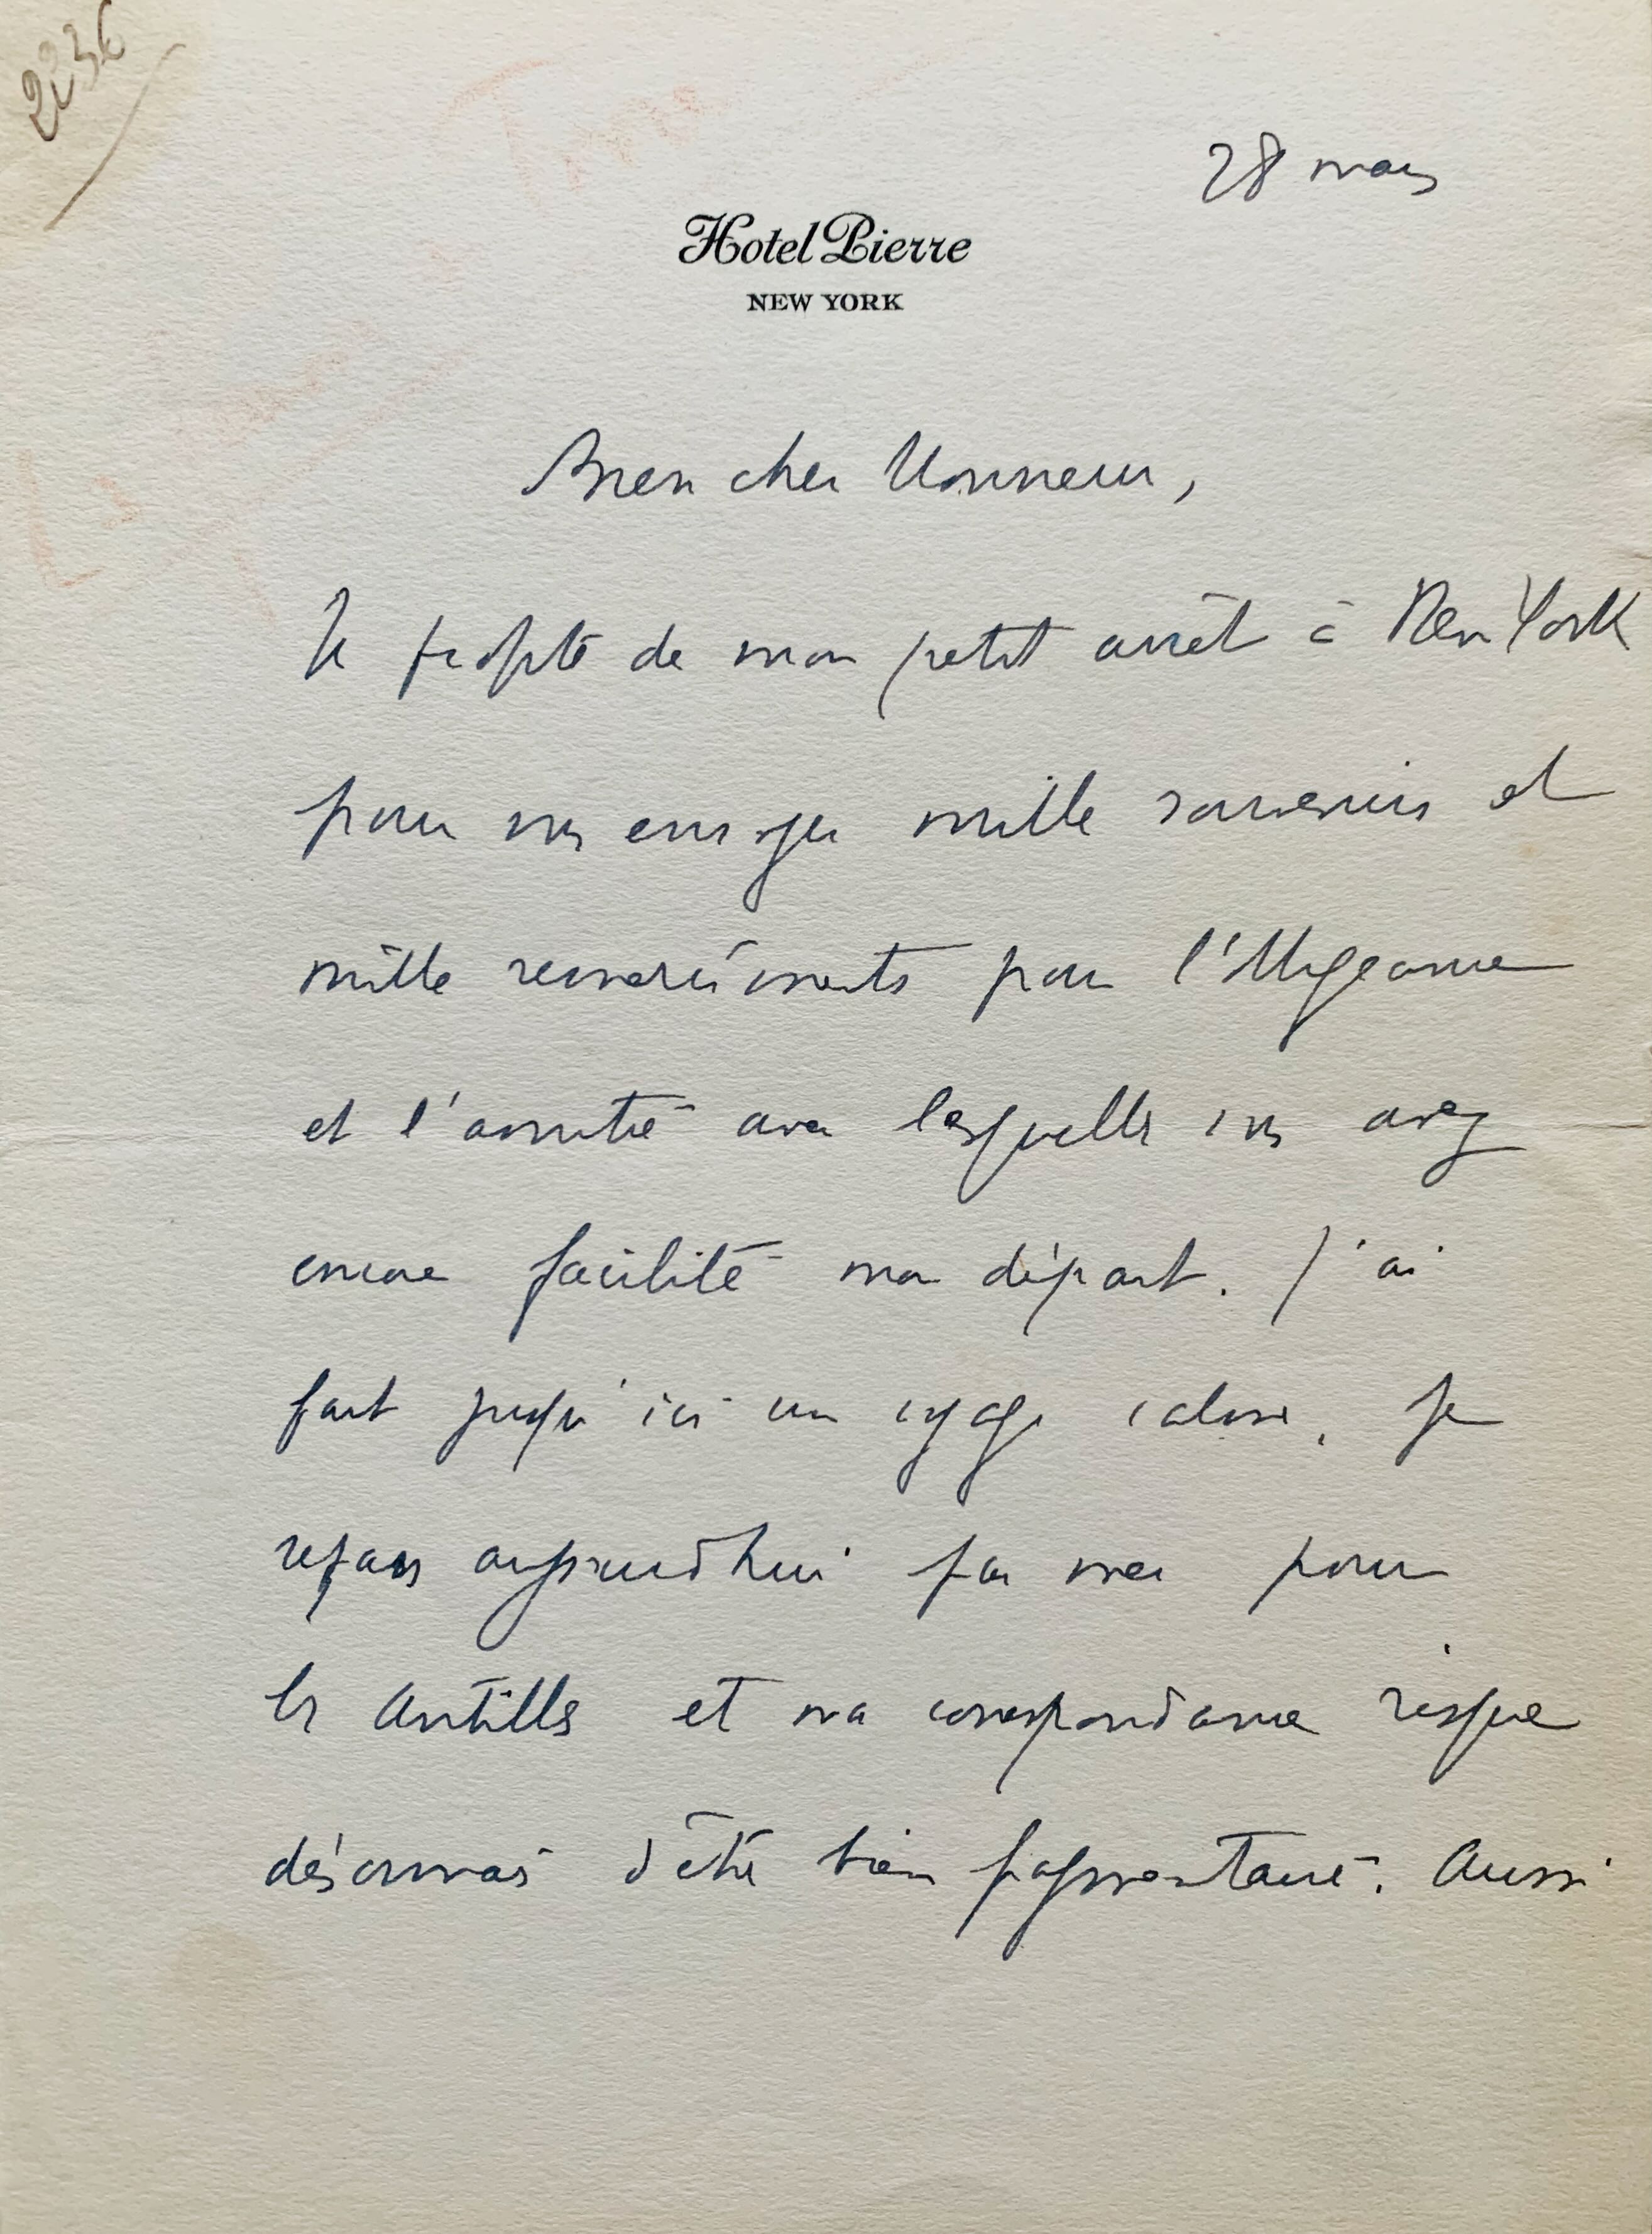 2236
28 mars
Hotel Pierre
NEW YORK
Bien cher Monsieur,
Je profite de mon petit arrêt à New York
pour vous envoyer mille souvenirs et
mille remerciements pour l'obligeance
et l'amitié avec lesquelles vous avez
encore facilité mon départ. J'ai
fait jusqu'ici un voyage calme. Je
repars aujourd'hui par mer pour
les Antilles et ma correspondance risque
désormais d'être bien fragmentaire. Aussi